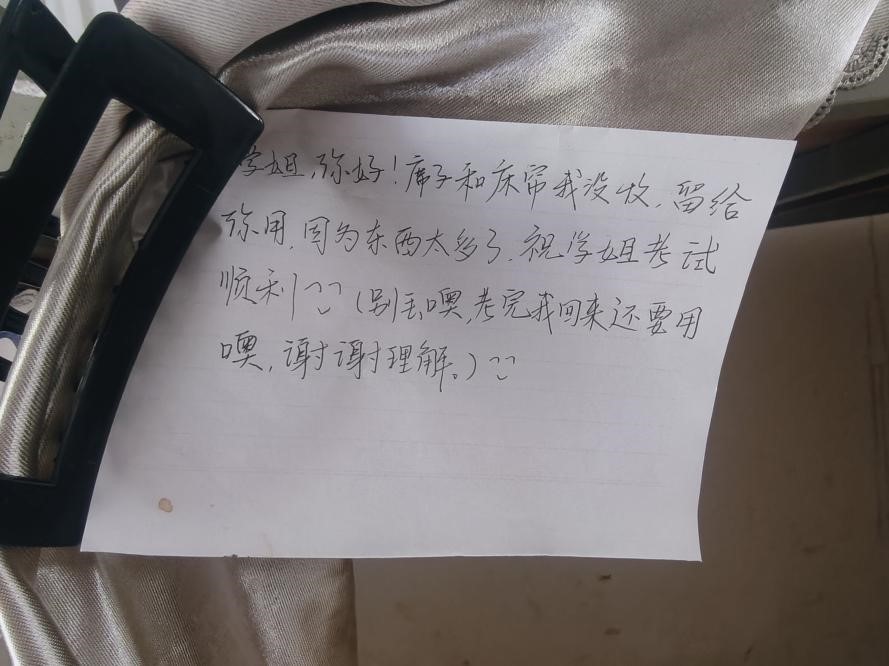 学姐,你好!席子和床帘我没收,留给
你用,因为东西太多了.祝学姐考试
顺利 (别丢噢,考完我回来还要用
噢,谢谢理解。)